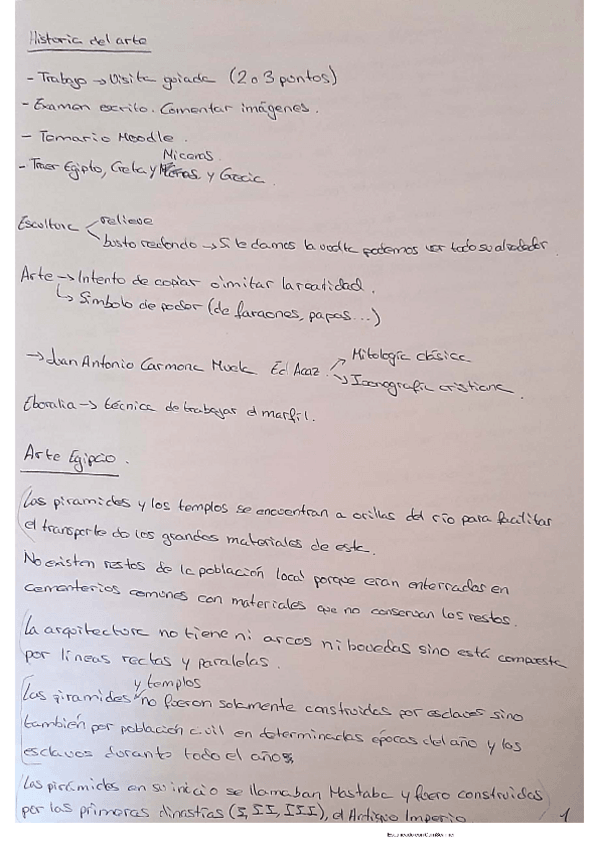 Historia del arte
- Trabajo → Visita guiada (2 o 3 puntos)
- Examen escrito. Comentar imágenes.
- Temario Moodle.
Micenas
- Traer Egipto, Creta y y Grecia.
Escultura relieve
busto redondo → Si le damos la vuelta podemos ver todo su alrededor
Arte → Intento de copiar o imitar la realidad.
↳ Símbolo de poder (de faraones, papas...)
→ Juan Antonio Carmona Muela Ed Acaz → Mitología clásica
→ Iconografía cristiana.
Eboraria → técnica de trabajar el marfil.
Arte Egipcio.
Las piramides y los templos se encuentran a orillas del río para facilitar
el transporte de los grandes materiales de este.
No existen restos de la población local porque eran enterrados en
cementerios comunes con materiales que no conservan los restos.
La arquitectura no tiene ni arcos ni bovedas sino está compuesta
por líneas rectas y paralelas.
y templos
Las piramides no fueron solamente construidas por esclavos sino
también por población civil en determinadas épocas del año y los
esclavos durante todo el año.
Las pirámides en su inicio se llamaban Mastaba y fuero construidas
por las primeras dinastías (I, II, III), el Antiguo Imperio
1
Escaneado con CamScanner